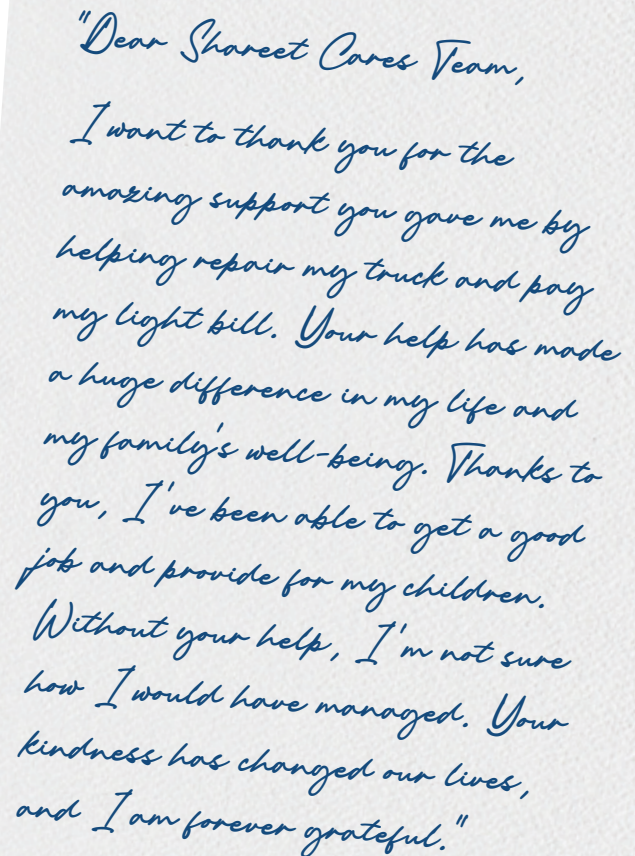 "Dear Shareet Cares Team,
I want to thank you for the
amazing support you gave me by
helping repair my truck and pay
my light bill. Your help has made
a huge difference in my life and
my family's well-being. Thanks to
you, I've been able to get a good
job and provide for my children.
Without your help, I'm not sure
how I would have managed. Your
kindness has changed our lives,
and I am forever grateful."